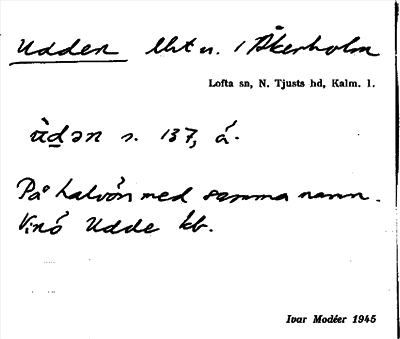 Udden lht u. / Åkerholm
Lofta sn, N. Tjusts hd, Kalm. l.
ùdən s. 137, á.
På halvön med samma namn.
Vinö Udde kb.
Ivar Modéer 1945